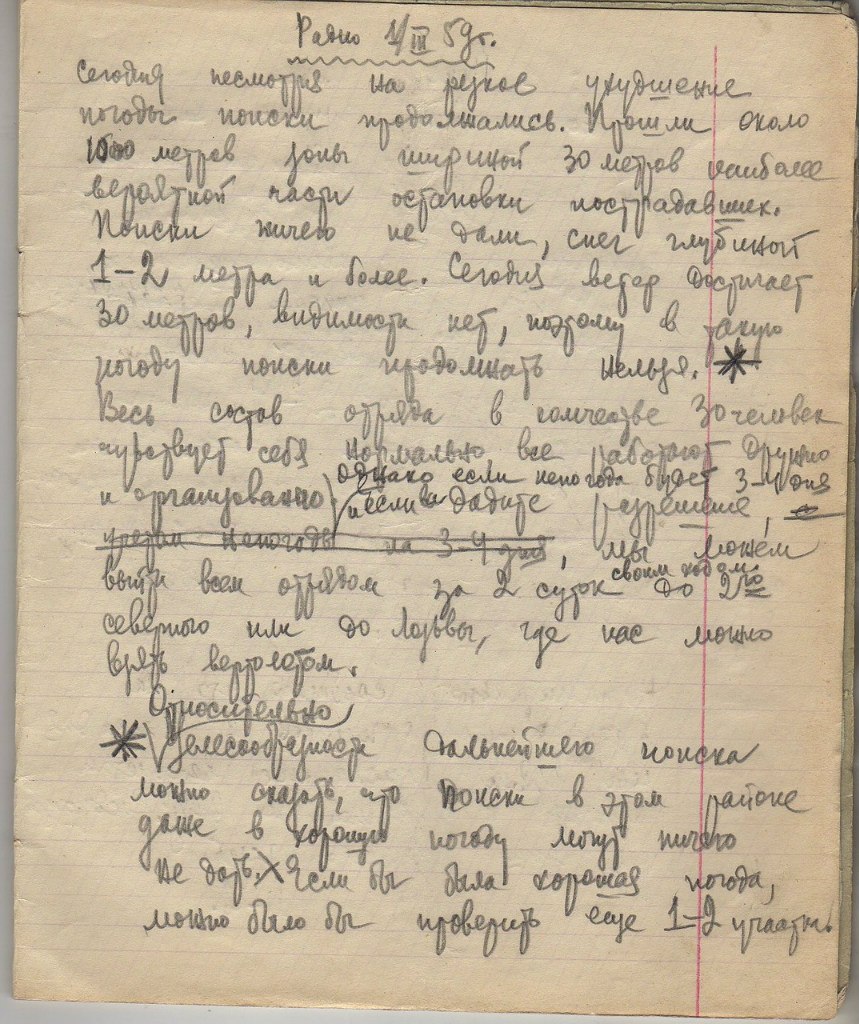 Радио 1/III 59г.
Сегодня несмотря на резкое ухудшение
погоды поиски продолжались. Прошли около
1000 метров зоны шириной 30 метров наиболее
вероятной части остановки пострадавших.
Поиски ничего не дали, снег глубиной
1-2 метра и более. Сегодня ветер достигает
30 метров, видимости нет, поэтому в такую
погоду поиски продолжать нельзя. *
Весь состав отряда в количестве 30 человек
чувствует себя нормально все работают дружно
однако если непогода будет 3-4 дня
и организованно и если вы дадите разрешение,
непогоды на 3-4 дня, мы можем
своим ходом
выйти всем отрядом за 2 суток до 2го
северного или до Лозьвы, где нас можно
взять вертолетом.
Относительно
* целесообразности дальнейшего поиска
можно сказать, что поиски в этом районе
даже в хорошую погоду могут ничего
не дать. Если бы была хорошая погода,
можно было бы проверить еще 1-2 участка.